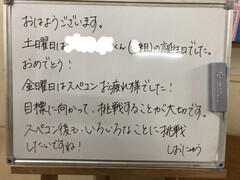 おはようございます。
土曜日は くん( 組)の誕生日でした。
おめでとう！
金曜日はスペコンお疲れ様でした！
目標に向かって、挑戦することが大切です。
スペコン後も、いろいろなことに挑戦
したいですね！
しおにゅう